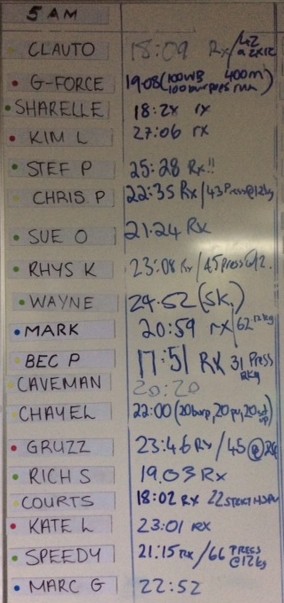 5 AM
CLAUTO 18:09 Rx/42
G-FORCE 19:03 (100WB 400m
100 burpees run)
SHARELLE 18:2x rx
KIM L 27:06 rx
STEF P 25:28 Rx!!
CHRIS P 22:35 Rx/43 Press@12kg
SUE O 21.24 Rx
RHYS K 23:08 Rx/45 press@12.
WAYNE 24.52 (5k)
MARK 20:59 rx/62 12kg
BEC P 17:51 RX 31 Press
12kg
CAVEMAN 20:20
CHAYEL 22:00 (20burp, 20pu, 20sit
up)
GRUZZ 23:46 Rx/45@
RICH S 19.03 Rx
COURTS 18:02 RX 22
KATE L 23:01 RX
SPEEDY 21:15 rx/66 PRESS
@12kg
MARC G 22:52